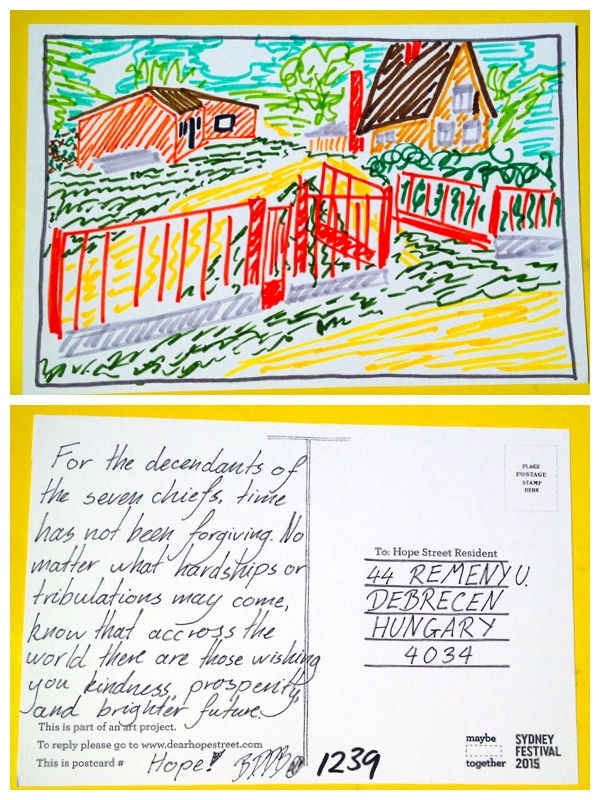 For the decendants of
the seven chiefs, time
has not been forgiving. No
matter what hardships or
tribulations may come,
know that accross the
world there are those wishing
you kindness, prosperity,
and brighter future.
This is part of an art project.
To reply please go to www.dearhopestreet.com
This is postcard #
Hope!
1239
PLACE
POSTAGE
STAMP
HERE
To: Hope Street Resident
44 REMENY U.
DEBRECEN
HUNGARY
4034
maybe
together
SYDNEY
FESTIVAL
2015